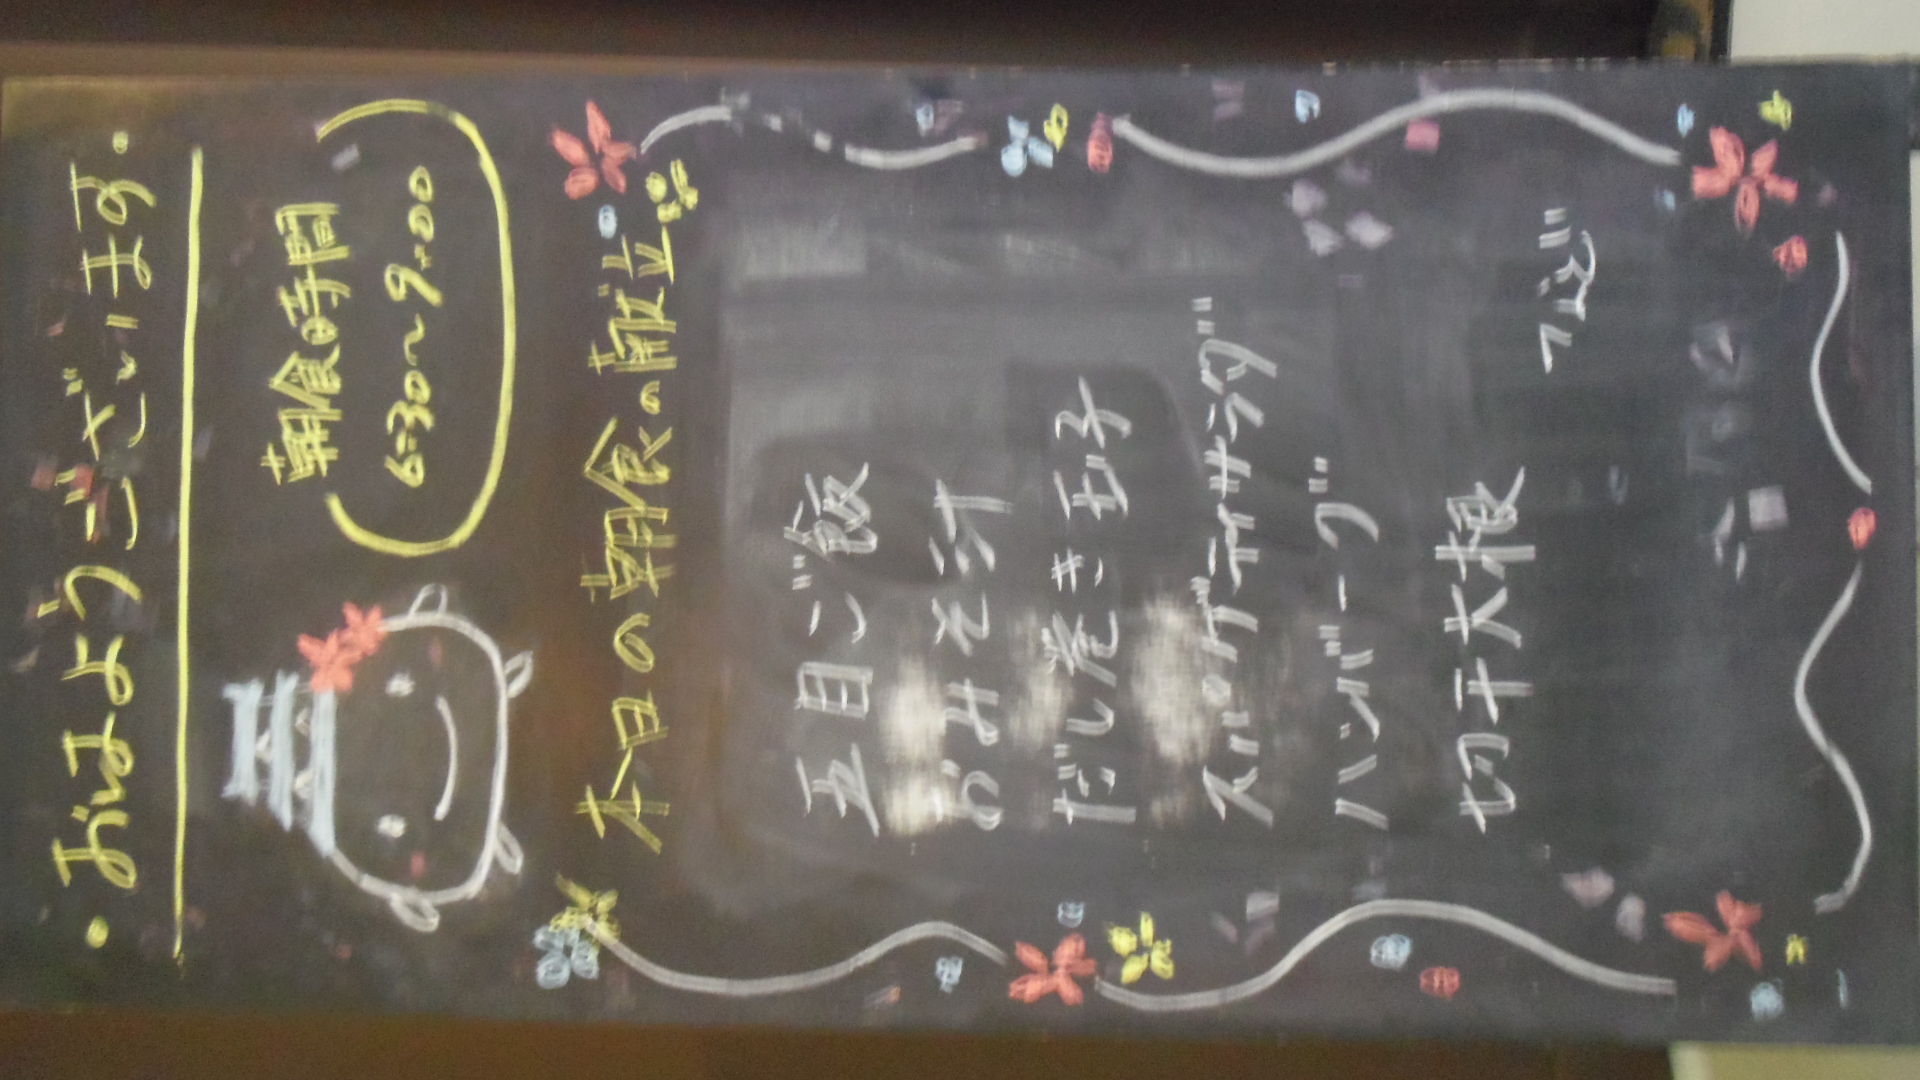 ・おはようございます・
朝食時間
6:30〜9:00
本日の朝食の献立
五目ご飯
おみそ汁
だし巻き玉子
スパゲティサラダ
ハンバーグ
切干大根
など